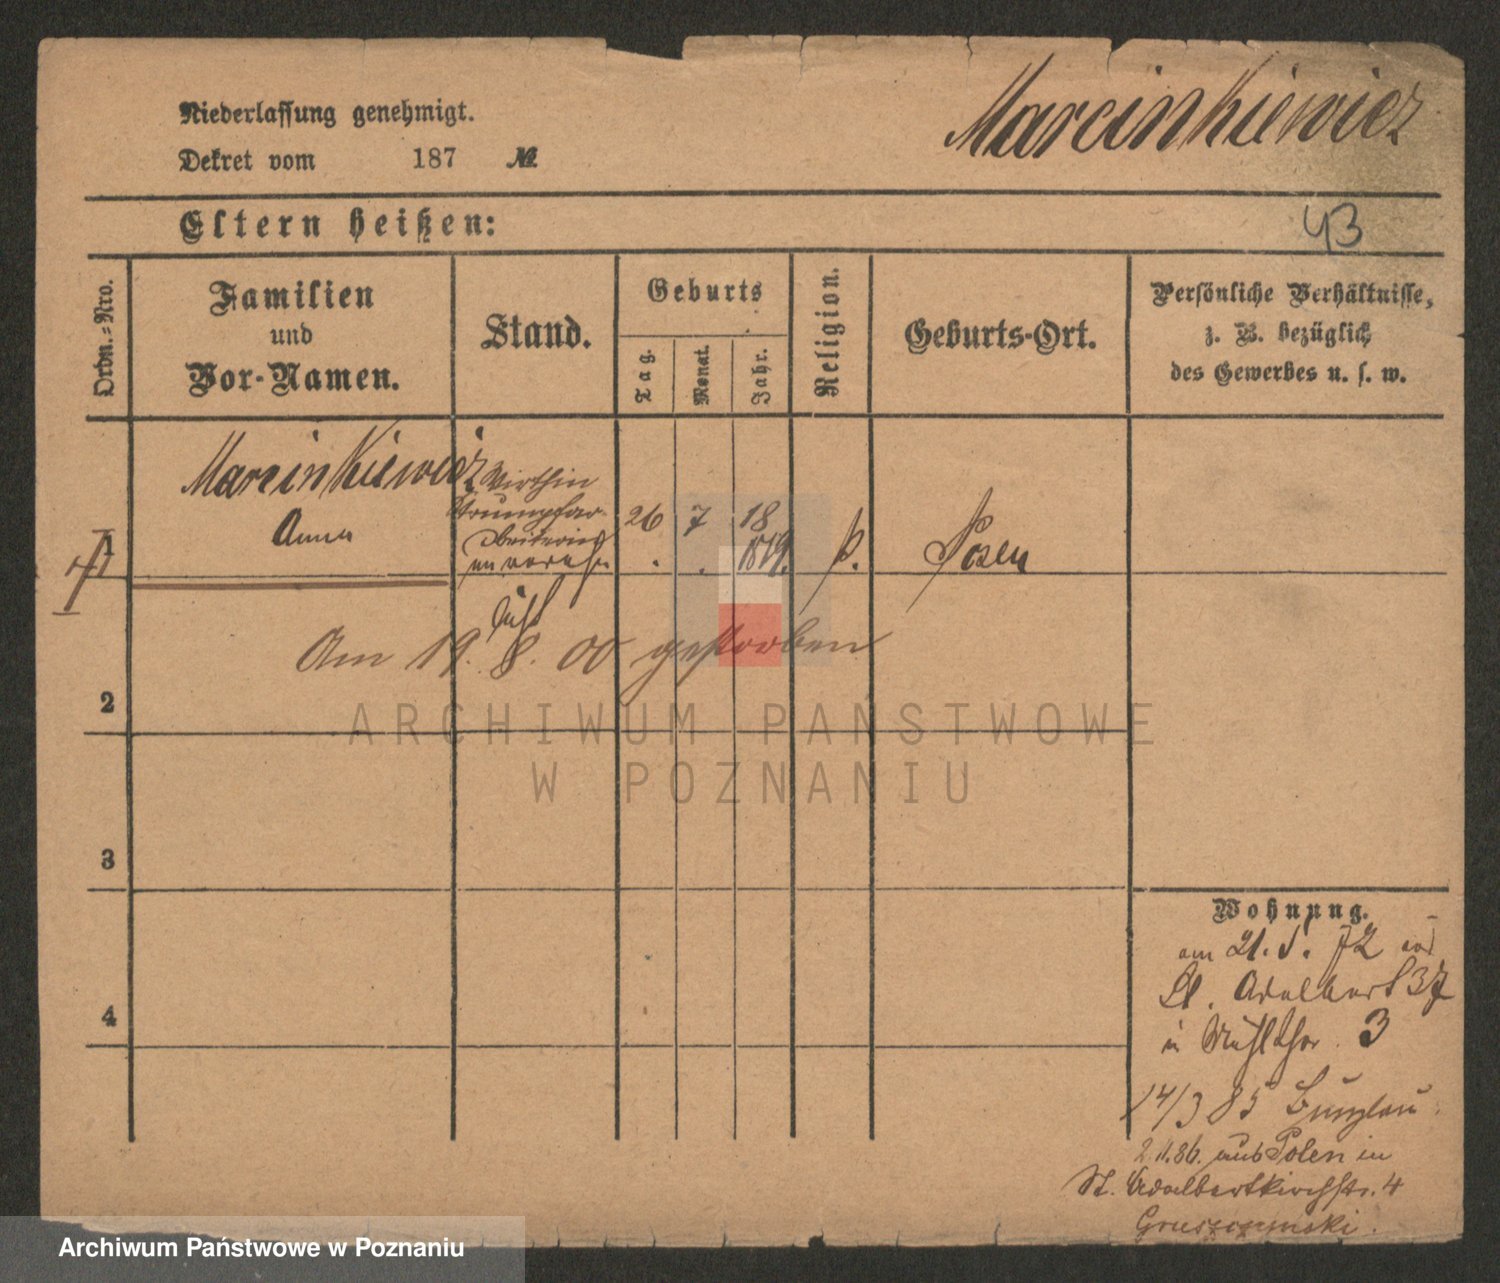 Niederlassung genehmigt.
Marcinkiewicz
Dekret vom 187 №
43
Eltern heißen:
Ordn.=Nro.
Familien und Vor-Namen.
Stand.
Geburts
Tag.
Monat.
Jahr.
Religion.
Geburts-Ort.
Persönliche Verhältnisse,
z. B. bezüglich
des Gewerbes u. s. w.
Marcinkiewicz
Wirthin
Anna
1
26 7 18
1819.
Posen
Am 19. 8. 00 gestorben
2
ARCHIWUM PAŃSTWOWE
W POZNANIU
3
Wohnung.
am 21. 5. 72
St. Adalbert 37
in Mühlthor 3
4
14/3 85 Bunzlau
2.11.86. aus Polen in
St. Adalbertkirchstr. 4
Archiwum Państwowe w Poznaniu